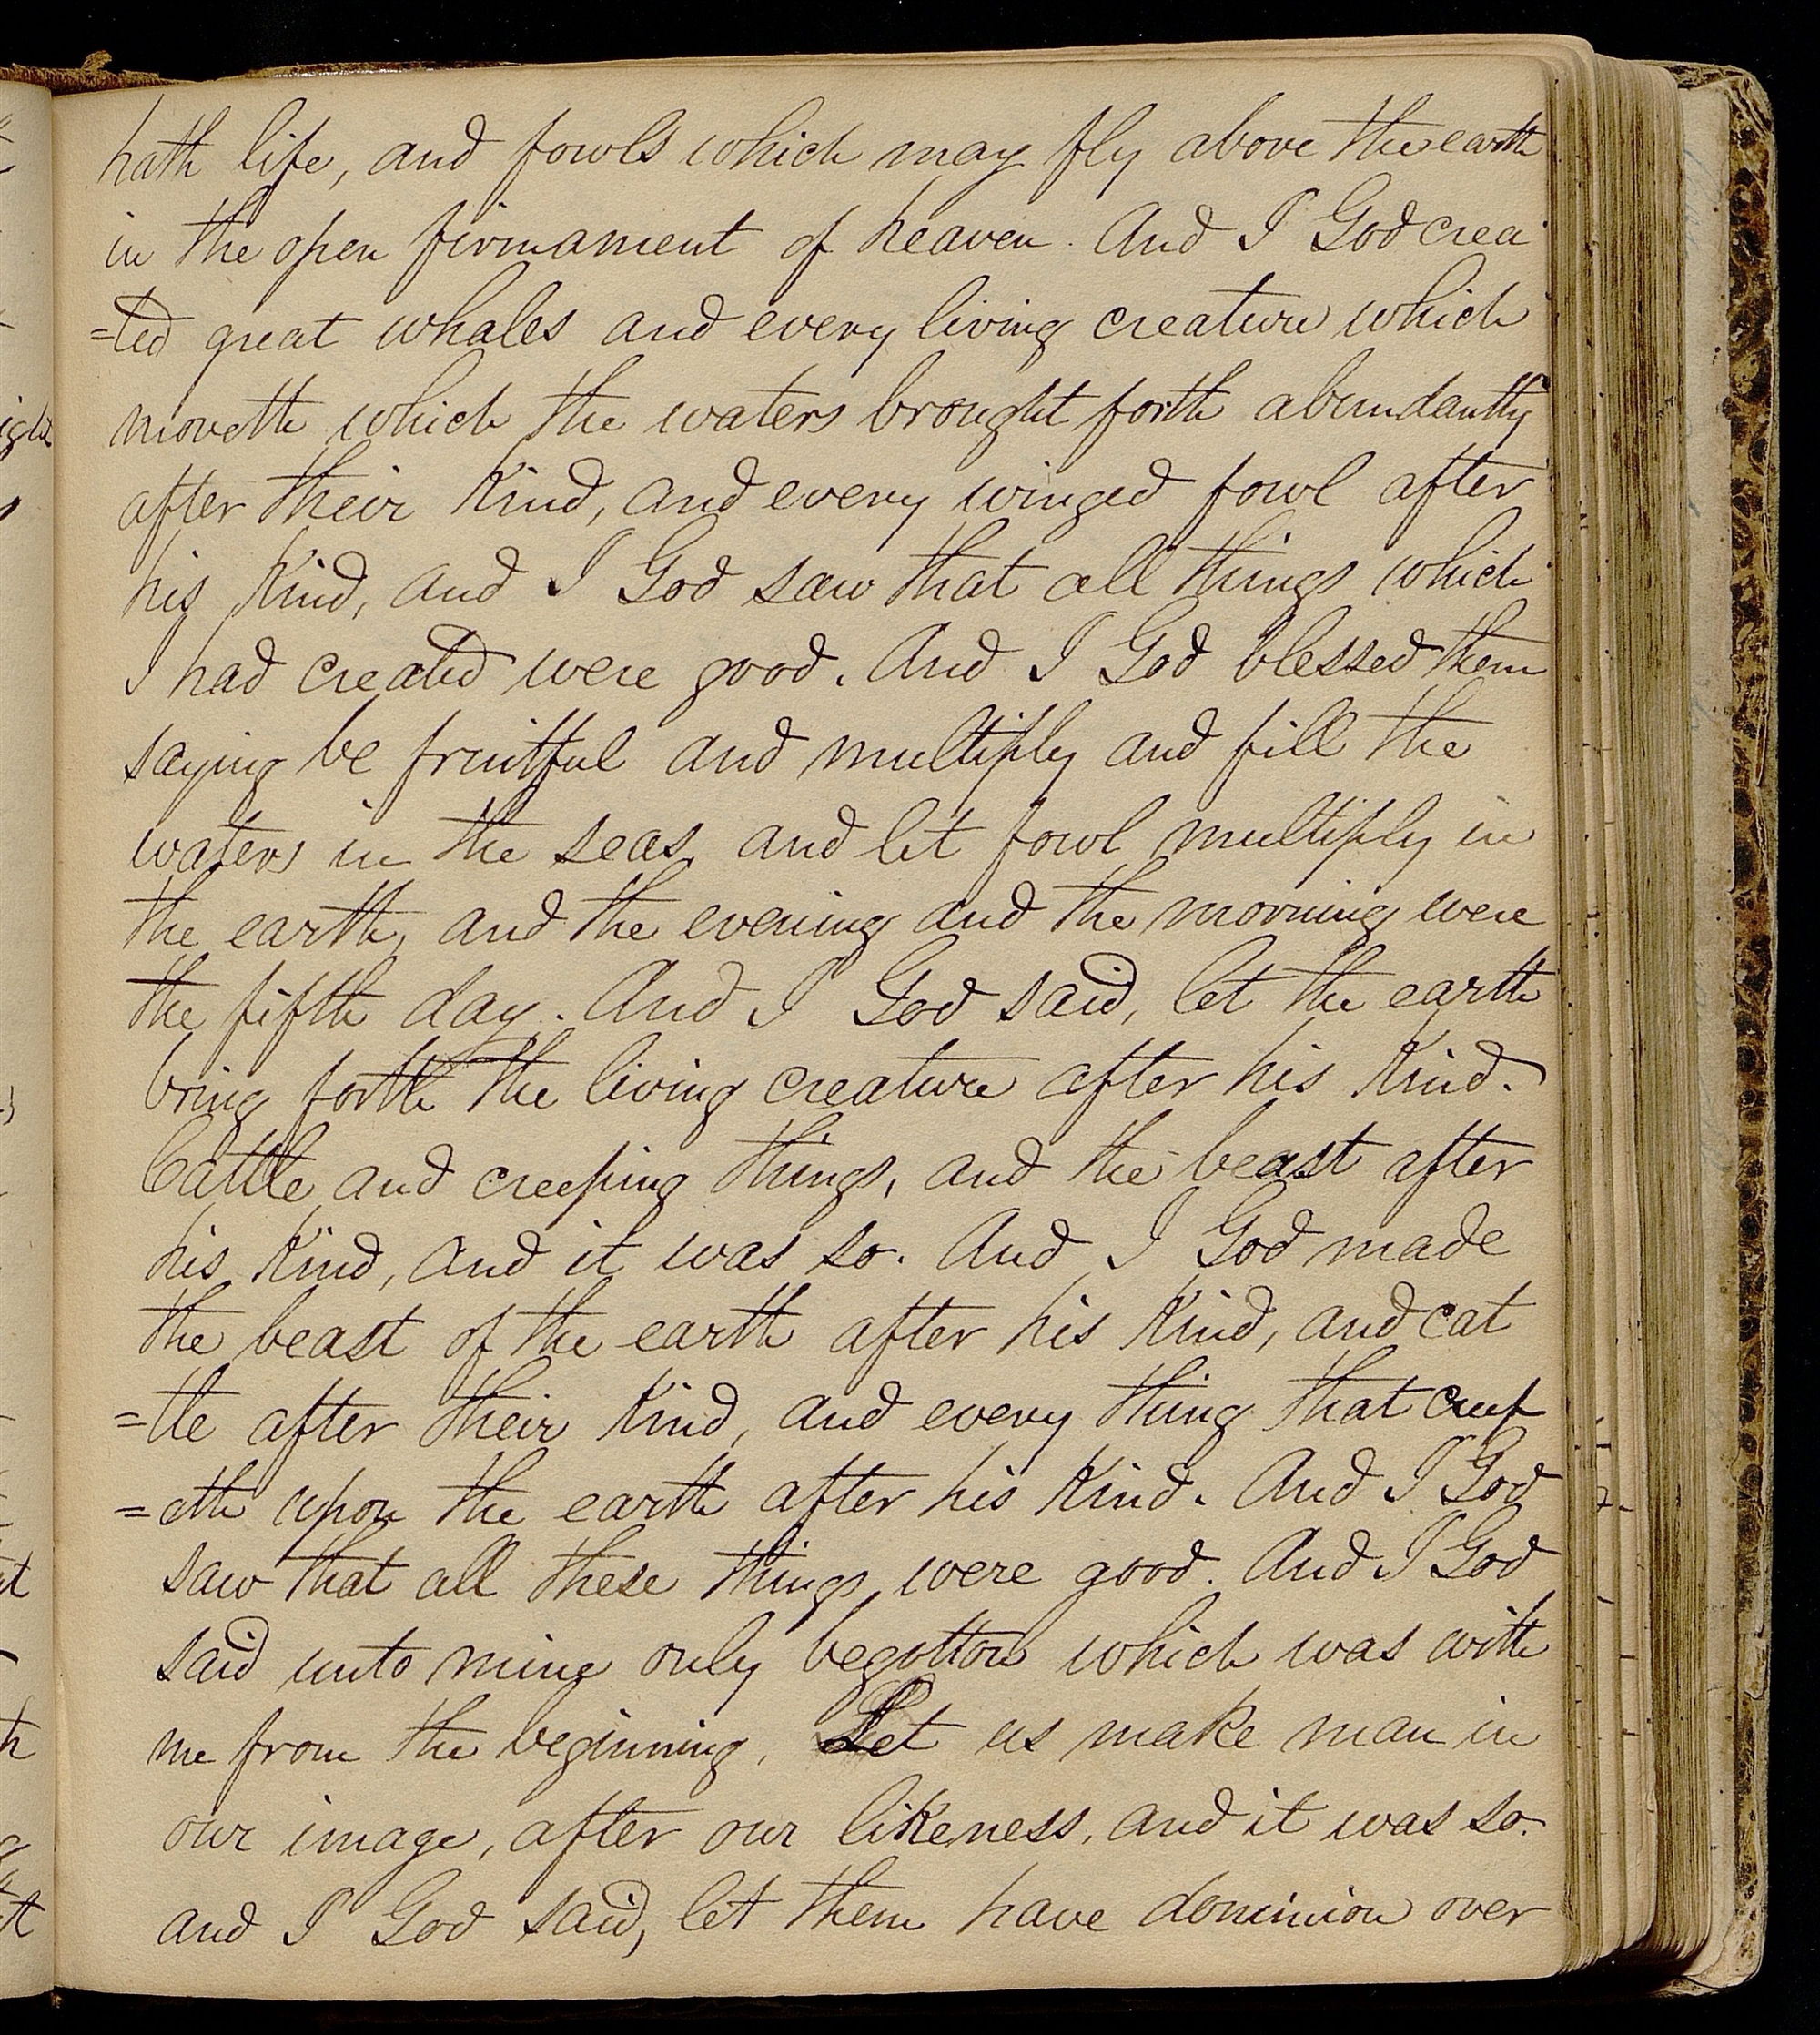 hath life, and fowls which may fly above the earth
in the open firmament of heaven. And I God crea
=ted great whales and every living creature which
moveth which the waters brought forth abundantly
after their kind, and every winged fowl after
his kind, and I God saw that all things which
I had created were good. And I God blessed them
saying be fruitful and multiply and fill the
waters in the seas and let fowl multiply in
the earth, and the evening and the morning were
the fifth day. And I God said, let the earth
bring forth the living creature after his kind.
Cattle and creeping things, and the beast after
his kind, and it was so. And I God made
the beast of the earth after his kind, and cat
=tle after their kind, and every thing that creep
=eth upon the earth after his kind. And I God
saw that all these things were good. And I God
said unto mine only begotton which was with
me from the beginning, Let us make man in
our image, after our likeness, and it was so.
and I God said, let them have dominion over